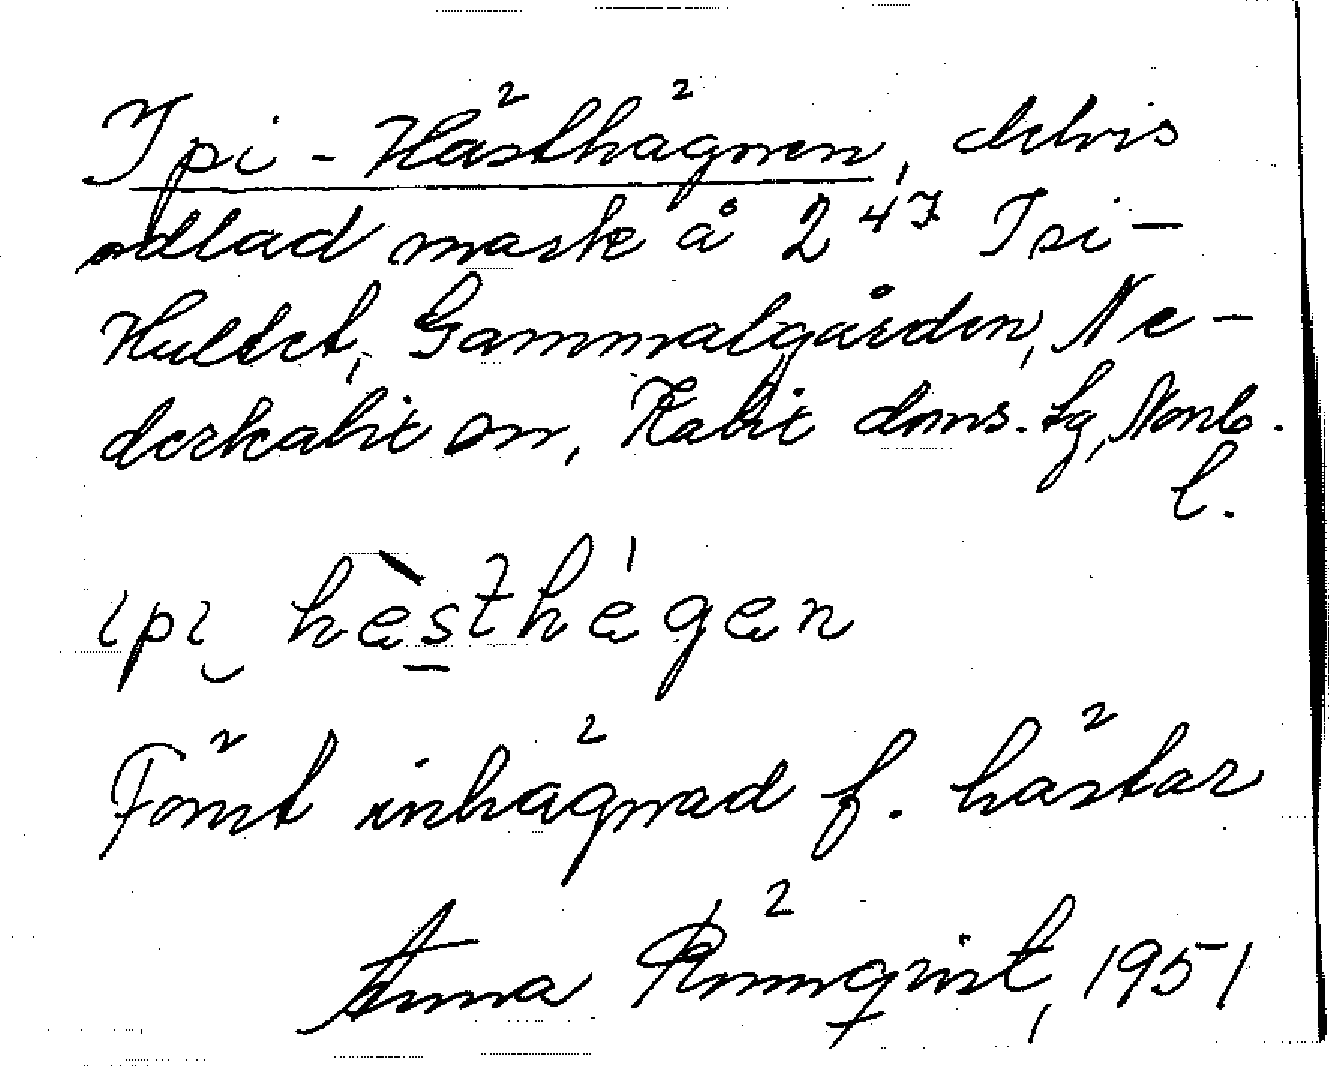 Ipi-Hästhägnen, delvis
odlad mark å 2 47 Ipi-
Hultet, Gammalgården, Ne-
derkalix sn, Kalix doms. lg, Norrb.
l.
ipi hèsthégen
Förut inhägnad f. hästar
Anna Rönnqvist, 1951